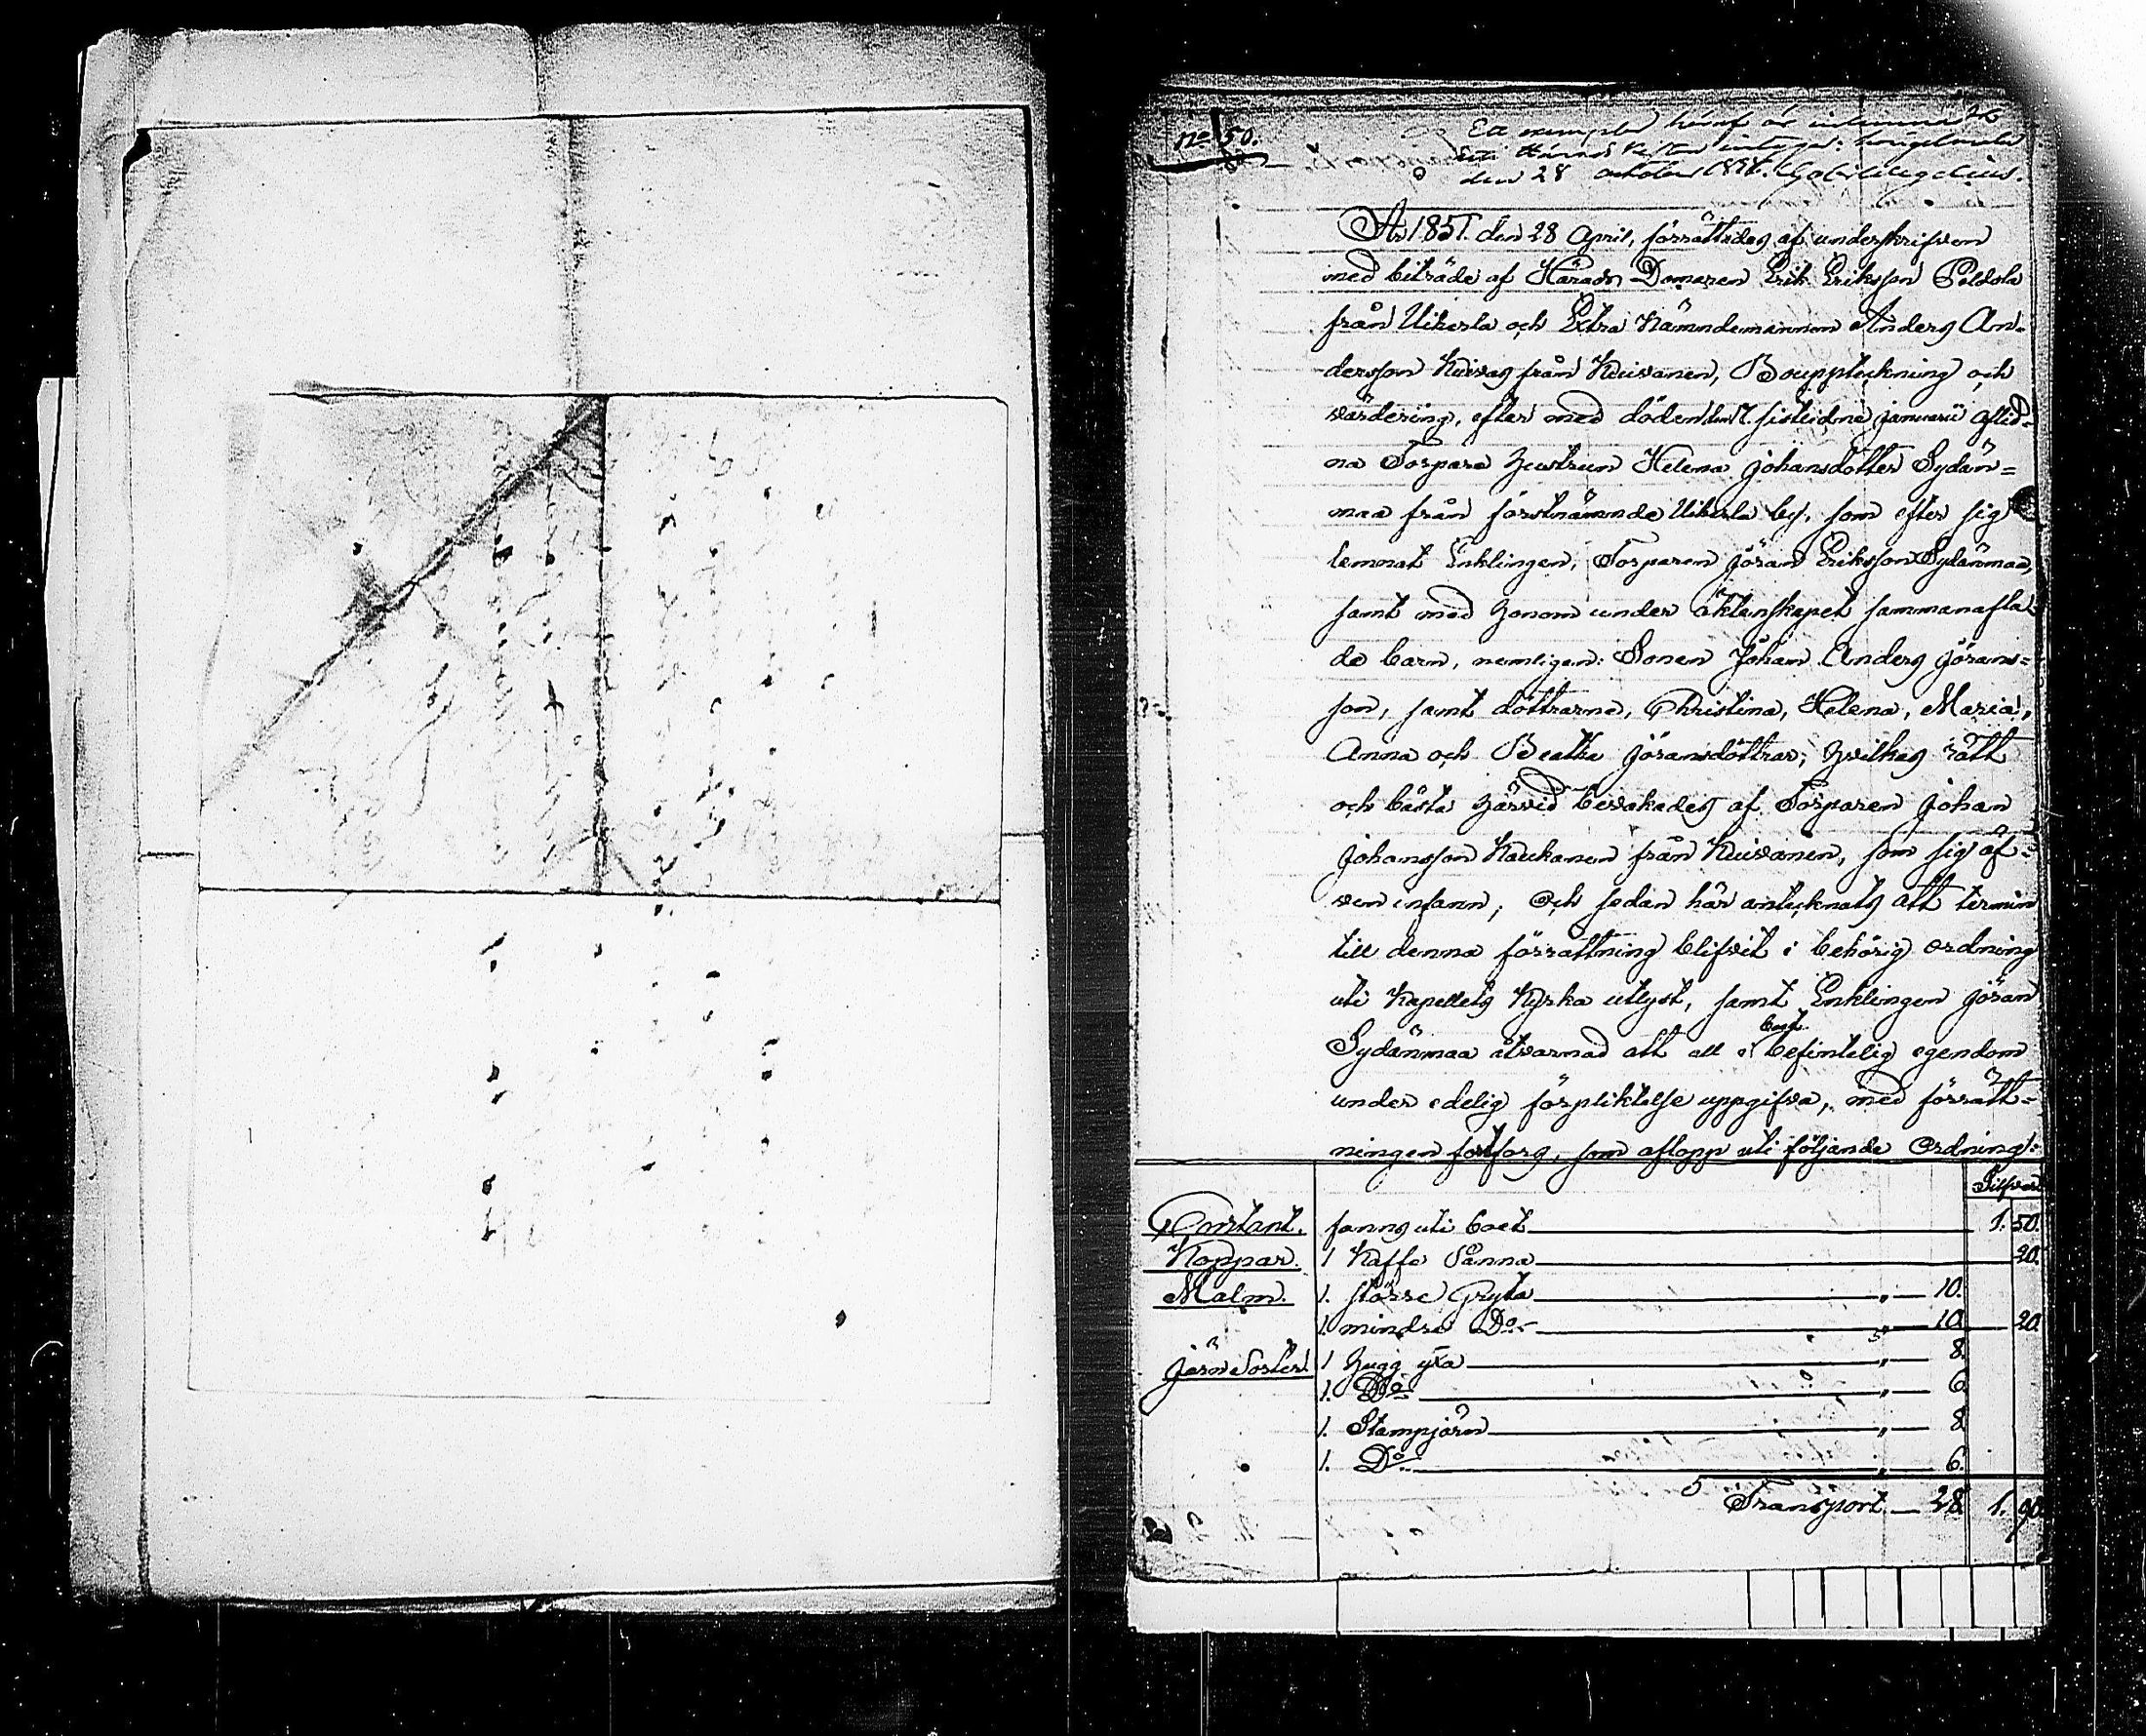 No 50.
Ett exemplar häraf är
den 28 october
År 1851. den 28 April, förrättades af underskrifven
med biträde af Härads Domaren Erik Eriksson Peldola
från Uikerla och Extra Nämndemannen Anders An-
dersson Kuivas från Kuivanen, Bouppteckning och
värdering, efter med döden den 17 sistledne januarii aflid-
na Torpare hustrun Helena Johansdotter Sydän=
maa från förstnämnde Uikerla by, som efter sig
lemnat Enklingen, Torparen Jöran Eriksson Sydänmaa,
samt med honom under äktenskapet sammanafla
de barn, nemligen: Sonen Johan Anders Jörans=
son, samt döttrarne, Christina, Helena, Maria,
Anna och Beatha Jöransdöttrar; hvilkas rätt
och bästa härvid bevakades af Torparen Johan
Johansson Kaukanen från Kuivanen, som sig äf=
ven infann; Och sedan här antecknats att termin
till denna förrättning blifvit i behörig ordning
uti Kapellets Kyrka utlyst, samt Enklingen Jöran
Sydänmaa åtvarnad att all i boet befintelig egendom
under edelig förpliktelse uppgifva, med förrätt=
ningen fortforos, som aflopp uti följande Ordning:
Silfver
Contant. fanns uti boet 1. 50.
Koppar. 1 Kaffe Panna 20.
Malm. 1. större Gryta " 10.
1. mindre Do " 10. 20.
Jern Saker. 1 Hugg yxa " 8.
1. Do " 6.
1. Stampjärn " 8
1. Do " 6.
Transport 28 1. 90.